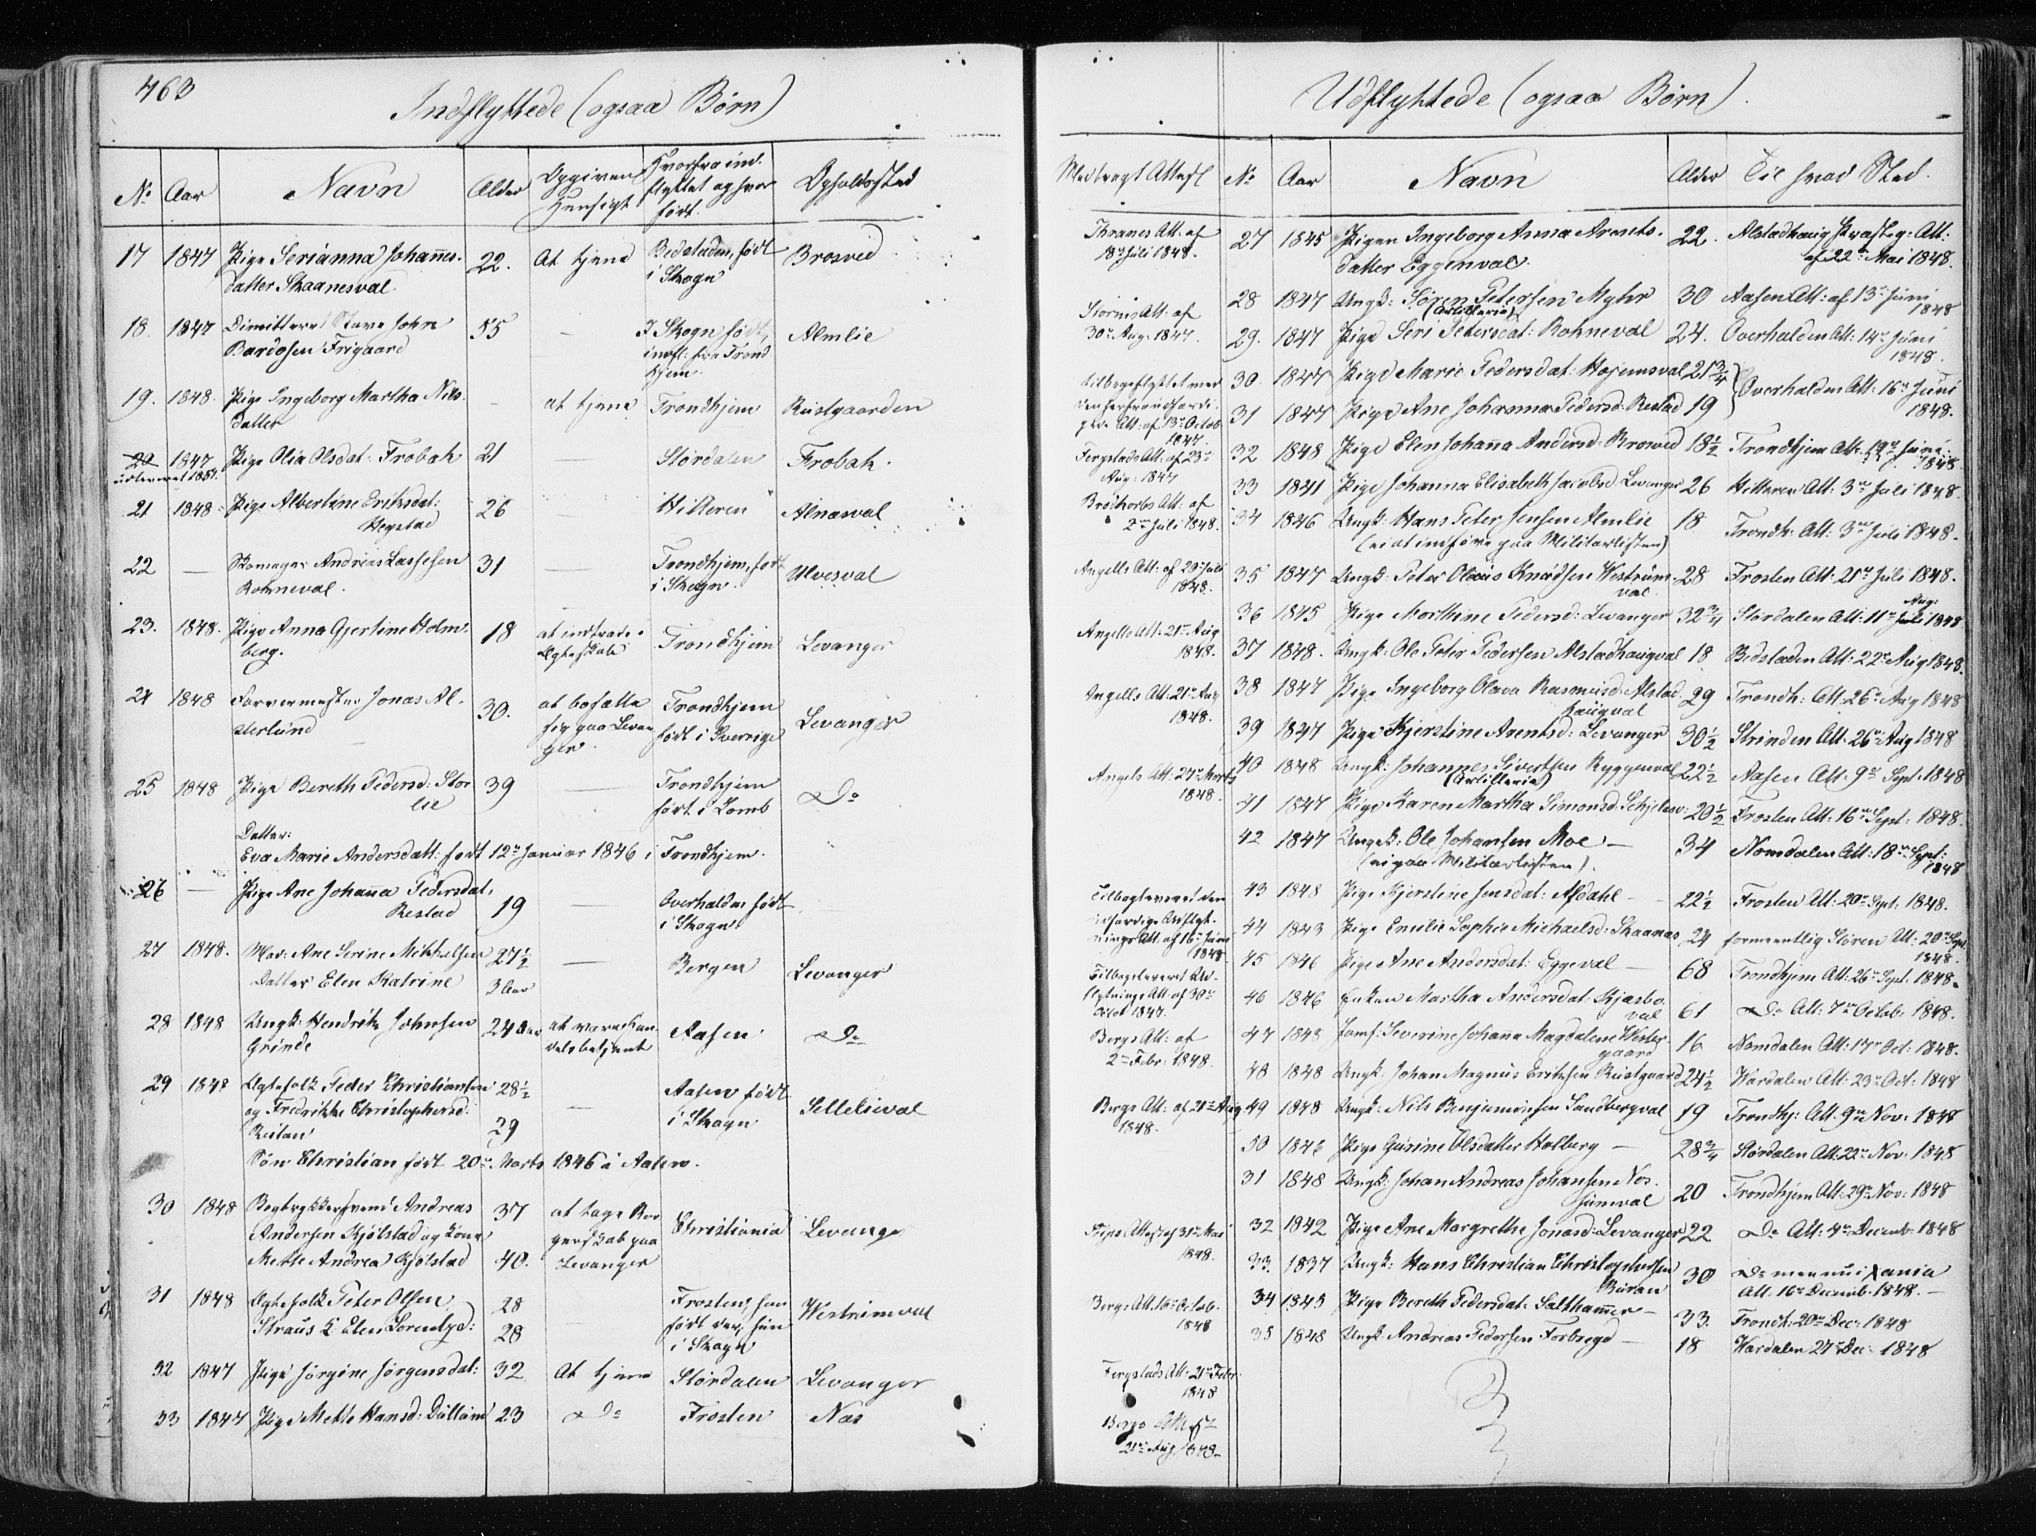 463
Indflyttede (ogsaa Børn)
No Aar Navn Alder Opgiven Hensigt Hvorfra indflyttet og hvor født. Opholdssted
17 1847 Pige Serianna Johannes- 22. At tjene Bedstaden, født Brosvid
datter Skaanesval. i Skogn
18. 1847 Dimitteret Slave John 55 — I Skogn født, Almlie
Bardosen Frigaard indfl. fra Trond
hjem.
19. 1848. Pige Ingeborg Martha Nils- - at tjene Trondhjem Rustgaarden
datter
20 1847 Pige Olia Olsdat. Frobak 21 Størdalen Frobak.
udleveret 1851.
21 1848 Pige Albertine Eriksdat: 26 Hitteren Alnæsval
Hegstad
22 — Skomager Andreas Lassesen 31 — Trondhjem, født Ulvesval
Rohneval. i Skogn.
23. 1848. Pige Anna Gjertine Holm- 18 at indtræde i Trondhjem Levanger
berg. Ægteskab
24 1848 Farvermester Jonas Al- 30. at bosætte Trondhjem Levanger
sterlund sig paa Levan født i Sverrige
ger.
25 1848 Pige Bereth Pedersd: Stor 39 — Trondhjem Do
lie født i Lomb
Datter:
Eva Marie Andersdatt: født 12te Januar 1846 i Trondhjem.
26 — Pige Ane Johanna Pedersdat. 19 — Overhalden født
Restad i Skogn
27 1848. Mad: Ane Serine Mikkelsen 27½ — Bergen Levanger
Datter Elen Katrine 3 Aar
28 1848 Ungk: Hendrik Johnsen 24 Aar at være Han Aasen Do
Grinde delsbetjent
29 1848 Ægtefolk Peder Christiansen 28½ — Aasen født Sellelieval
og Fredrikke Christophersd: i Skogn
Reitan 29
Søn Christian født 20de Marts 1846 i Aasen.
30 1848 Bogtrykkersvend Andreas 37 at tage Bor Christiania Levanger
Andersen Kjølstad og Kone gerskab paa
Mette Andrea Kjølstad 40. Levanger
31 1848 Ægtefolk Peter Olsen 28 Frosten, han Westrimval
Straus & Elen Lorentzd: 28 født der, hun
i Skogn
32 1847 Pige Jørgine Jørgensdat: 32 At tjene Størdalen Levanger
33 1847 Pige Mette Hansd: Dullum 23 Do Frosten Næs
Medbragt Attest
Thranes Att. af
18de Juli 1848.
Att: af
30te Aug: 1847.
tilbageflyttet med
Att: af 13de Octob
1847.
Fergstads Att: af 23de
Aug: 1847
Att: af
2den Juli 1848.
Angells Att: af 29de Juli
1848.
Angells Att: 21de Aug
1848.
Angells Att: 21de Aug
1848.
Angels Att: 27de Marts
1848.
Tilbageleveret den
Udflyt-
nings Att. af 16de Juni
1848
Tilbageleveret Ud-
flytnings Att af 30te
Octob 1847.
Bergs Att: af
2den Febr: 1848.
Bergs Att: af 21de Aug
1848.
Attest af 31te Mai
1848.
Bergs Att. 16de Octob.
1848
Fergstads Att: 21de Febr
1848
Bergs Att af
21de Aug 1848
Udflyttede (ogsaa Børn).
No Aar Navn Alder Til hvad Sted.
27 1845 Pigen Ingeborg Anna Arents- 22. Alstadhaug Præsteg: Att:
datter Eggenval. af 22de Mai 1848.
28 1847 Ungk: Søren Petersen Myhr 30 Aasen Att: af 13de Juni
(Artillerie) 1848
29. 1847 Pige Seri Petersdat: Rohneval 24. Overhalden Att: 14de Juni
1848.
30. 1847 Pige Marie Pedersdat: Hojemsval 21¾ Overhalden Att: 16de Juni
31 1847 Pige Ane Johanna Pedersd: Restad 19 1848.
32 1848 Pige Elen Johanna Andersd: Brosvid 18½ Trondhjem Att: 19de Juni
1848
33 1841 Pige Johanna Elisabeth Jacobsd Levanger 26 Hitteren Att: 3die Juli 1848.
34 1846 Ungk: Hans Peter Jensen Almlie 18 Trondh: Att: 3die Juli 1848.
(ei at indføre paa Militærlisten)
35 1847 Ungk: Peter Olaus Knudsen Westrum 28 Frosten Att: 21de Juli 1848.
val. Aug:
36 1845 Pige Marthine Pedersd: Levanger 32¾ Størdalen Att: 11te Juli 1848
37 1848. Ungk: Ole Peter Pedersen Alstadhaugval 18 Bedstaden Att: 22de Aug 1848.
38 1847 Pige Ingeborg Olava Rasmusd: Alstad 29 Trondh: Att: 26de Aug 1848
haugval
39 1847 Pige Kjerstine Arentsd: Levanger 30½ Strinden Att. 26de Aug 1848
40 1848 Ungk: Johannes Sivertsen Ryggenval 22½ Aasen Att: 9de Sept. 1848
(Artillerie)
41 1847 Pige Karen Martha Simonsd: 20½ Frosten Att: 16de Sept: 1848.
42 1847 Ungk: Ole Johansen Moe — 34 Namdalen Att: 18de Sept:
(ei paa Militærlisten). 1848
43 1848 Pige Kjerstine Jensdat: Afdahl — 22½ Frosten Att: 20de Sept. 1848.
44 1843 Pige Emilie Sophie Michaelsd: Skaanæs 24 formeentlig Att: 20de Sept
1848.
45 1846 Pige Ane Andersdat: Eggeval — 68 Trondhjem Att: 26de Sept. 1848.
46 1846 Enken Martha Andersdat: 61 Do Att: 7de Octob: 1848.
val
47 1848 Jomf: Severine Johanna Magdalene Wester 16 Namdalen Att: 14de Oct: 1848.
gaard
48 1848 Ungk: Johan Magnus Eriksen Rustgaard 24½ Værdalen Att: 23de Oct: 1848
49 1848 Ungk: Nils Benjaminsen Sandbergval 19 Trondhj: Att. 9de Nov: 1848
50 1846 Pige Gurine Olsdatter Holberg — 28¾ Størdalen Att: 22de Nov: 1848
51 1848 Ungk: Johan Andreas Johansen Nos- 20 Trondhjem Att: 29de Nov: 1848
sumval
52 1842 Pige Ane Margrethe Jonasd: Levanger 22 Do Att: 4de Decemb: 1848
53. 1837 Ungk: Hans Christian Christophersen 30 Do men nu i Xania
Buran Att. 16de Decemb: 1848. —
54 1843 Pige Bereth Pedersdat: Salthammer — 33. Trondh: 20de Dec: 1848
55 1848 Ungk: Andreas Pedersen Forbregd — 18 Værdalen 27de Dec: 1848